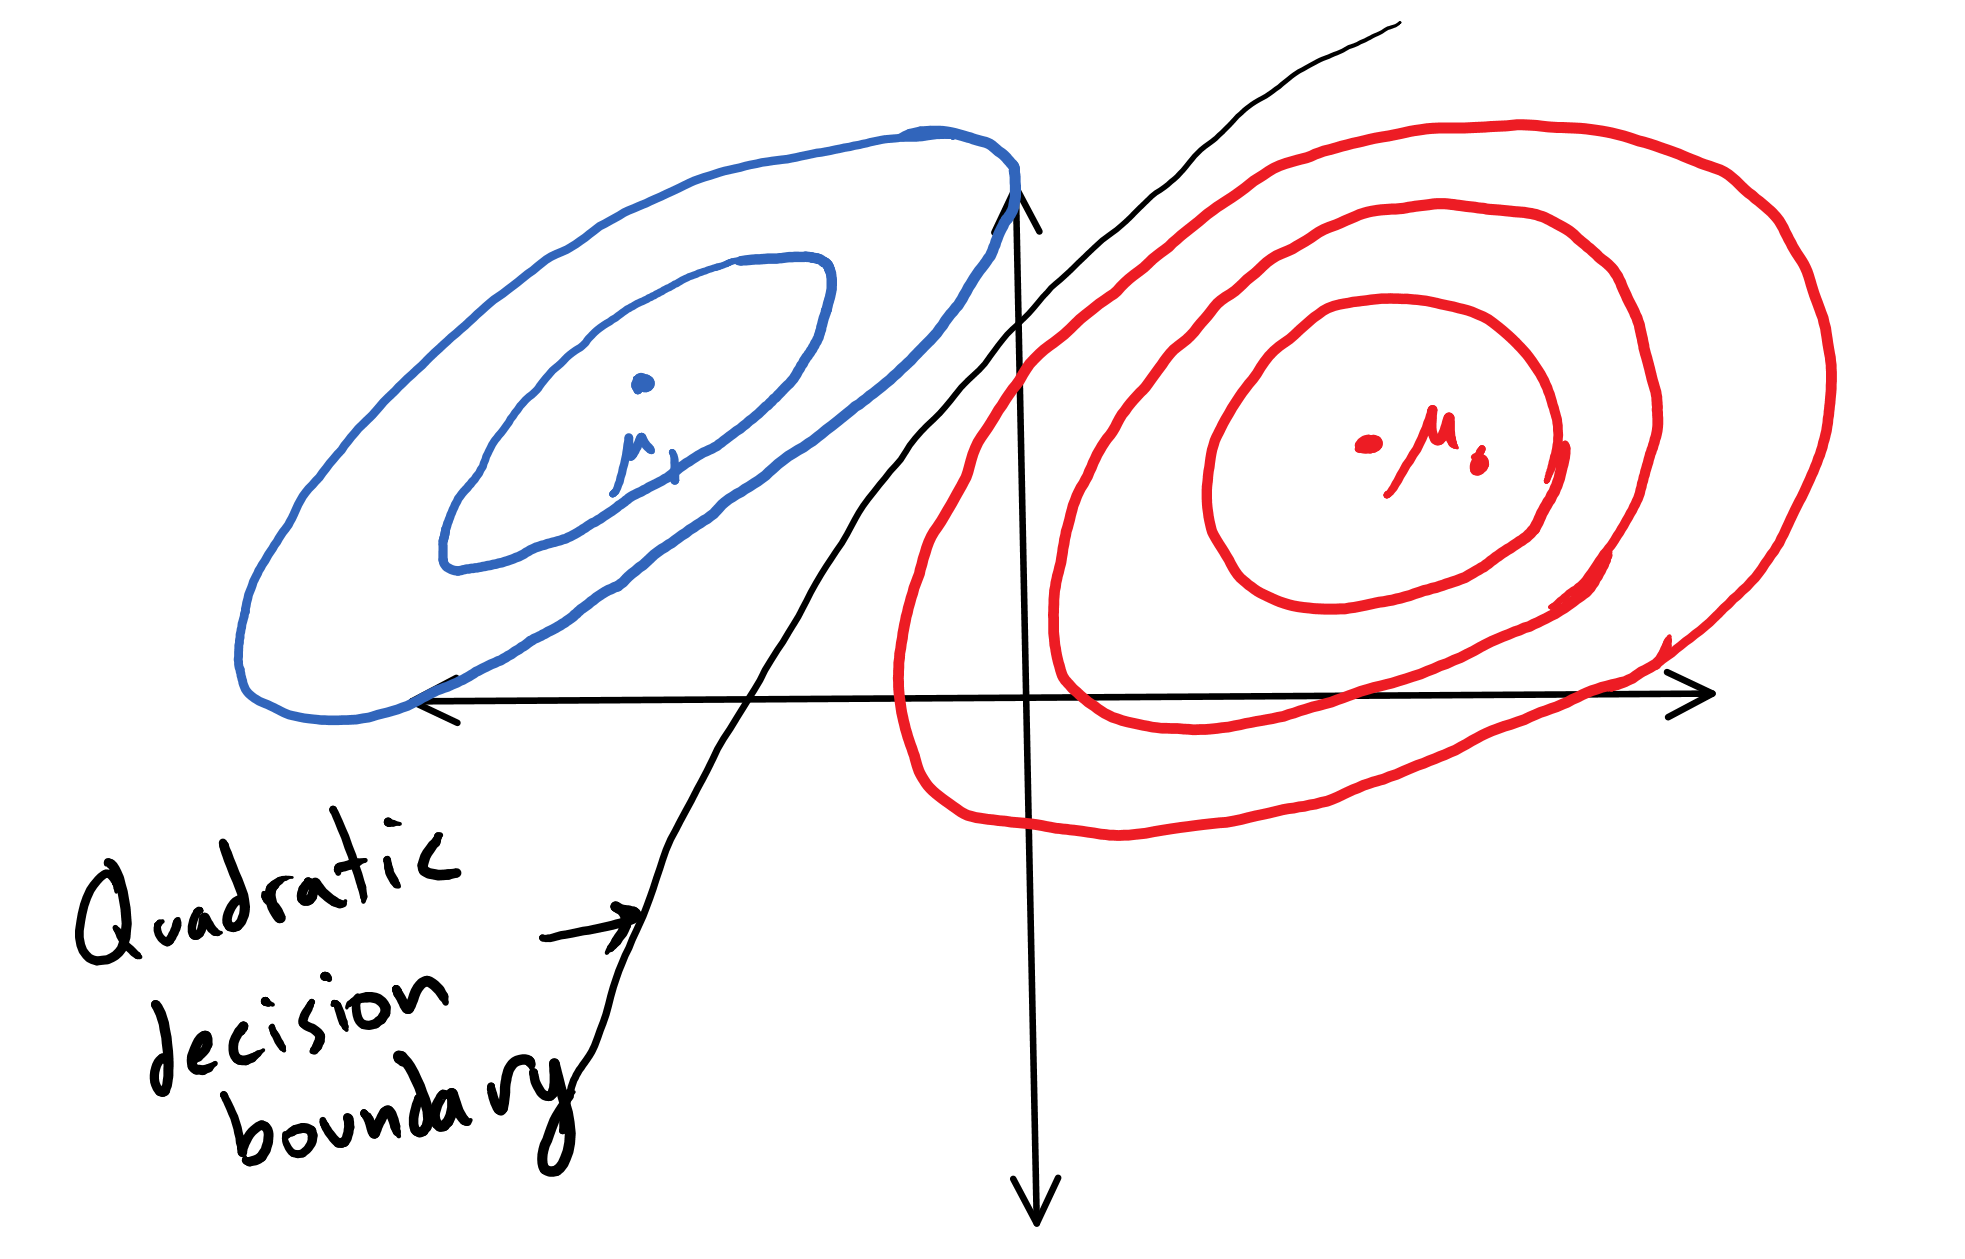 μ₁
μ₀
Quadratic
decision
boundary